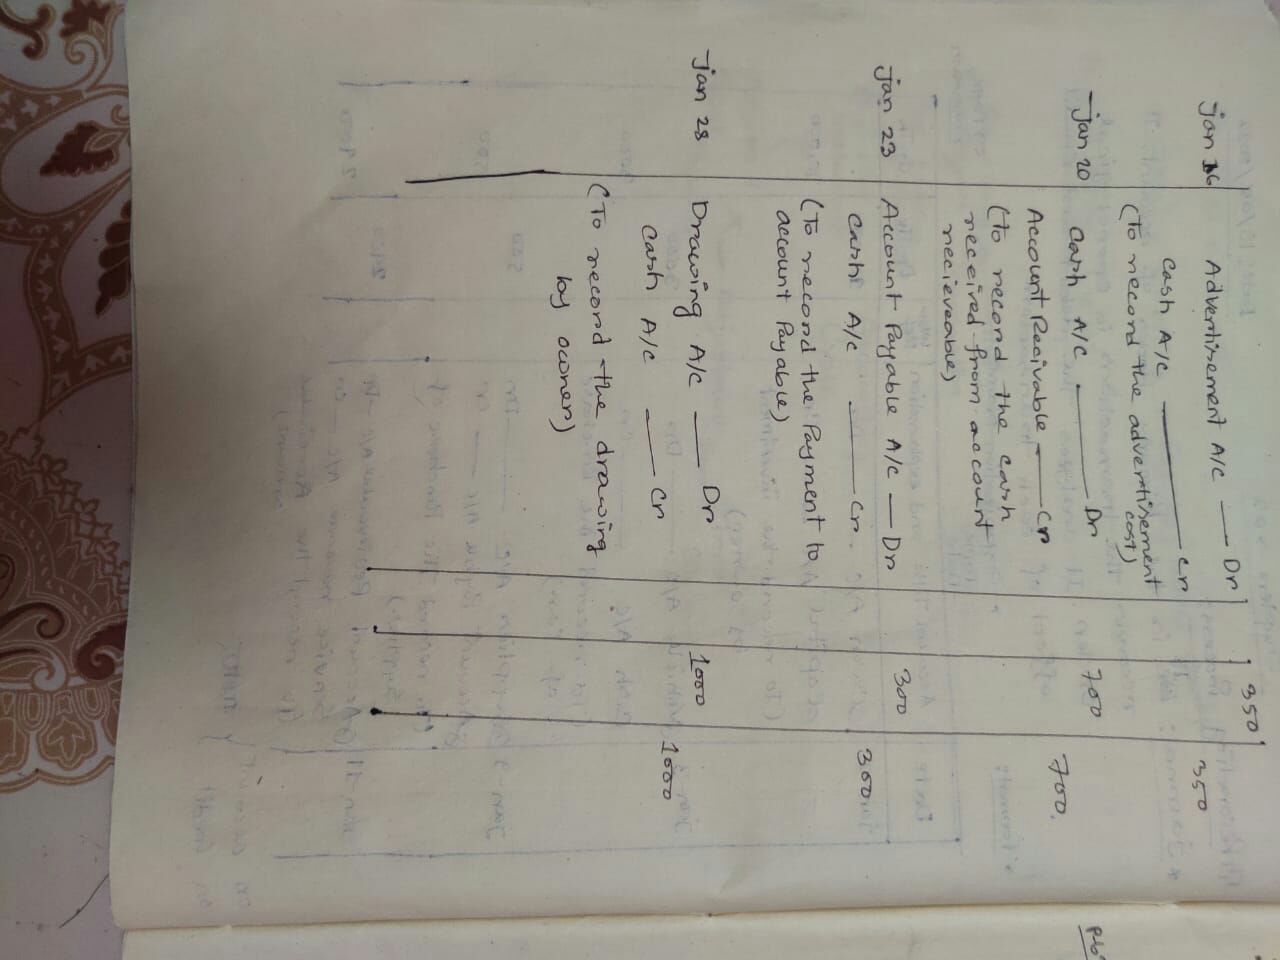 350
jan 16 Advertisement A/C — Dr
350
Cash A/C — Cr
(To record the advertisement
cost)
jan 20 Cash A/C — Dr 700
Account Recivable — Cr 700.
(To record the cash
received from account
recieveable)
jan 23 Account Payable A/C — Dr 300
Cash A/C — Cr 300
(To record the Payment to
account Payable)
jan 28 Drawing A/C — Dr 1000
Cash A/C — Cr 1000
(To record the drawing
by owner)